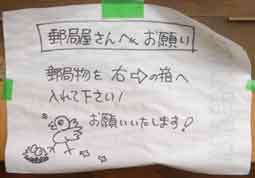 郵局屋さんへ お願い
郵局物を 右⇨の箱へ
入れて下さい!
お願いいたします!